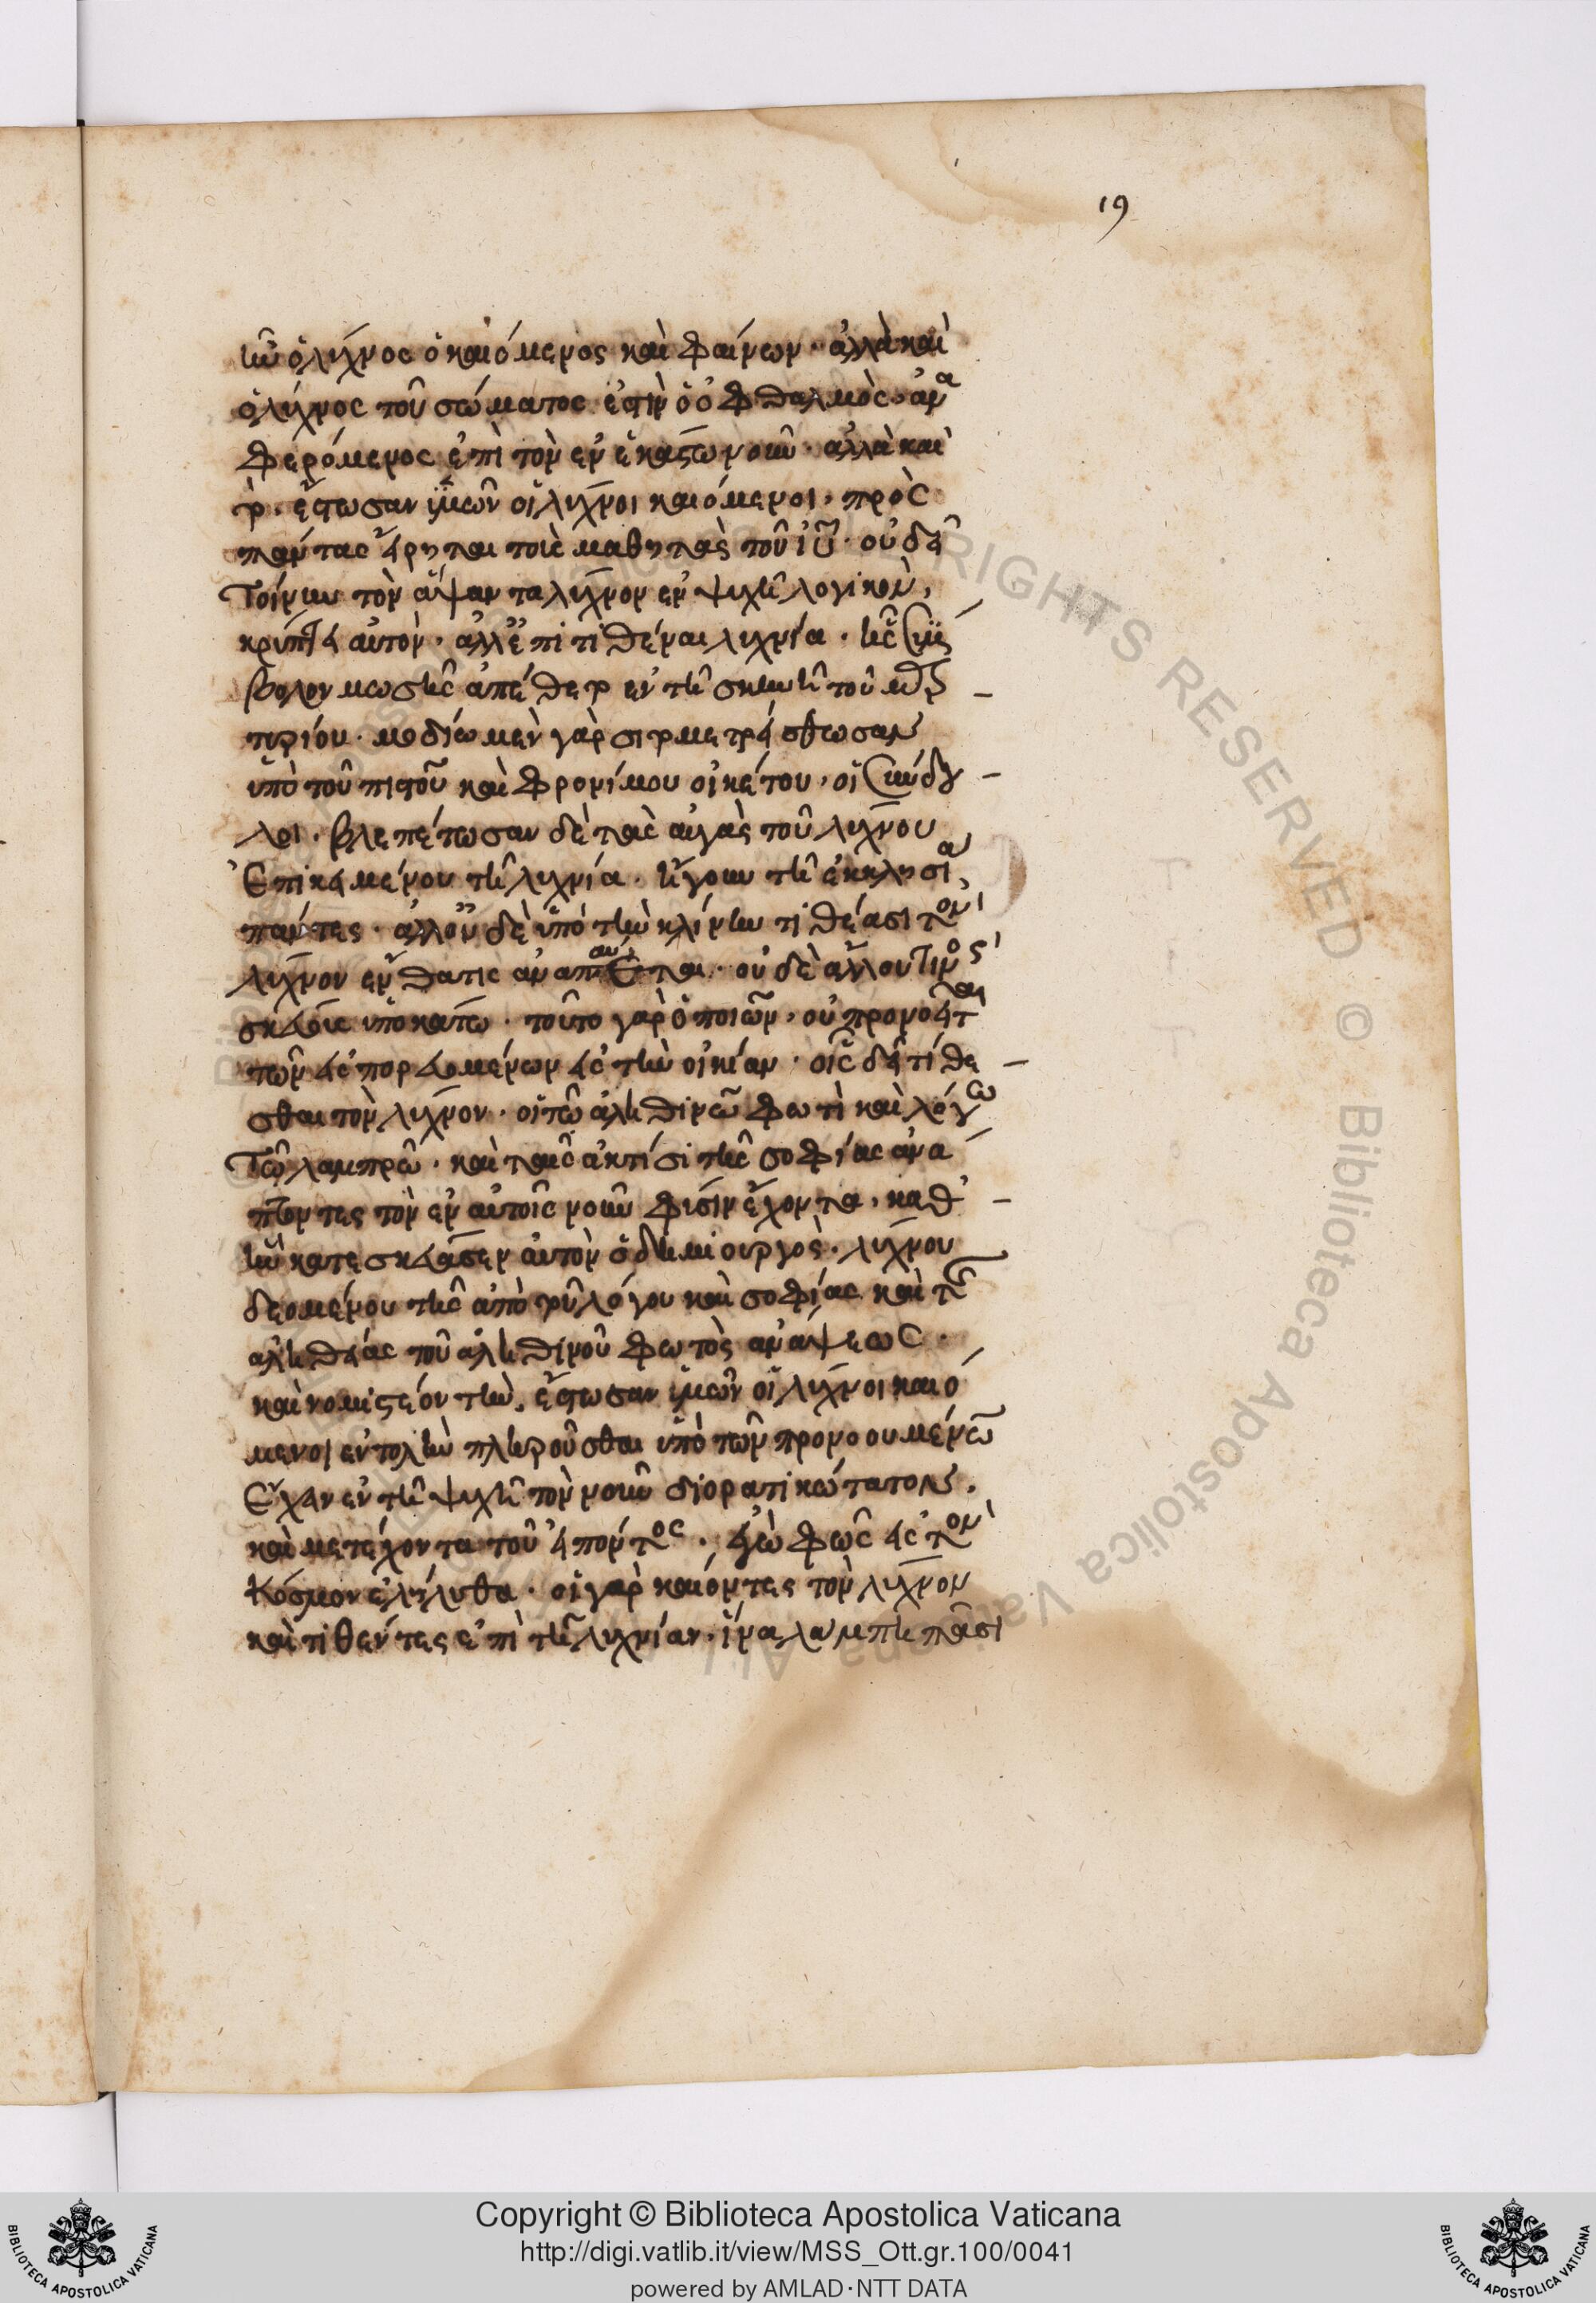 19
ἦν ὁ λύχνος ὁ καιόμενος καὶ φαίνων · ἀλλὰ καὶ
ὁ λύχνος τοῦ σώματος ἐστὶν ὁ ὀφθαλμὸς · ἀνα
φερόμενος ἐπὶ τὸν ἐν ἑκάστω νοῦν · ἀλλὰ καὶ
ἔστωσαν ὑμῶν οἱ λύχνοι καιόμενοι · πρὸς
πάντας εἴρηται τοὺς μαθητὰς τοῦ ἰῦ · οὐ δεῖ
τοίνυν τὸν ἅψαντα λύχνον ἐν ψυχῆ λογικὸν,
κρύπτει αὐτὸν · ἀλλ' ἐπιτιθέναι λυχνία · ἧς σύμ
βολον μωσῆς ἀπέθετο ἐν τῆ σκηνῆ τοῦ μαρ
τυρίου · μοδίω μὲν γὰρ σιτομετρείσθωσαν
ὑπὸ τοῦ πιστοῦ καὶ φρονίμου οἰκέτου, οἱ σύνδου
λοι · βλεπέτωσαν δὲ τὰς αὐγὰς τοῦ λύχνου
ἐπικειμένου τῆ λυχνία · ἤγουν τῆ ἐκκλησία,
πάντες · ἀλλ' οὐ δὲ ὑπὸ τὴν κλίνην τιθέασι τὸν
λύχνον ἔνθα τις ἀναπαύεται · οὐδὲ ἄλλου τινὸς
σκεύους ὑποκάτω · τοῦτο γὰρ ὁ ποιῶν, οὐ προνοεῖται
τῶν εἰσπορευομένων εἰς τὴν οἰκίαν · οἷς δεῖ τίθε
σθαι τὸν λύχνον · οἱ τῶ ἀληθινῶ φωτὶ καὶ λόγω
τῶ λαμπρῶ · καὶ ταῖς ἀκτίσι τῆς σοφίας ἀνά
πτοντες τὸν ἐν αὐτοῖς νοῦν φύσιν ἔχοντα, καθ'
ἣν κατεσκεύασεν αὐτὸν ὁ δημιουργὸς · λύχνου
δεομένου τῆς ἀπὸ τοῦ λόγου καὶ σοφίας καὶ τῆς
ἀληθείας τοῦ ἀληθινοῦ φωτὸς ἀνάψεως ·
καὶ νομιστέον τὴν, ἔστωσαν ὑμῶν οἱ λύχνοι καιό
μενοι ἐντολὴν πληροῦσθαι ὑπὸ τῶν προνοουμένων
ἔχειν ἐν τῆ ψυχῆ τὸν νοῦν διορατικώτατον,
καὶ μετέχοντα τοῦ εἰπόντος · ἐγὼ φῶς εἰς τὸν
κόσμον ἐλήλυθα · οἱ γὰρ καίοντες τὸν λύχνον
καὶ τιθέντες ἐπὶ τὴν λυχνίαν, ἵνα λάμπη πᾶσι
Copyright © Biblioteca Apostolica Vaticana
http://digi.vatlib.it/view/MSS_Ott.gr.100/0041
powered by AMLAD·NTT DATA